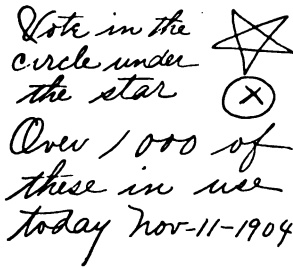 Vote in the
circle under
the star
X
Over 1000 of
these in use
today Nov-11-1904